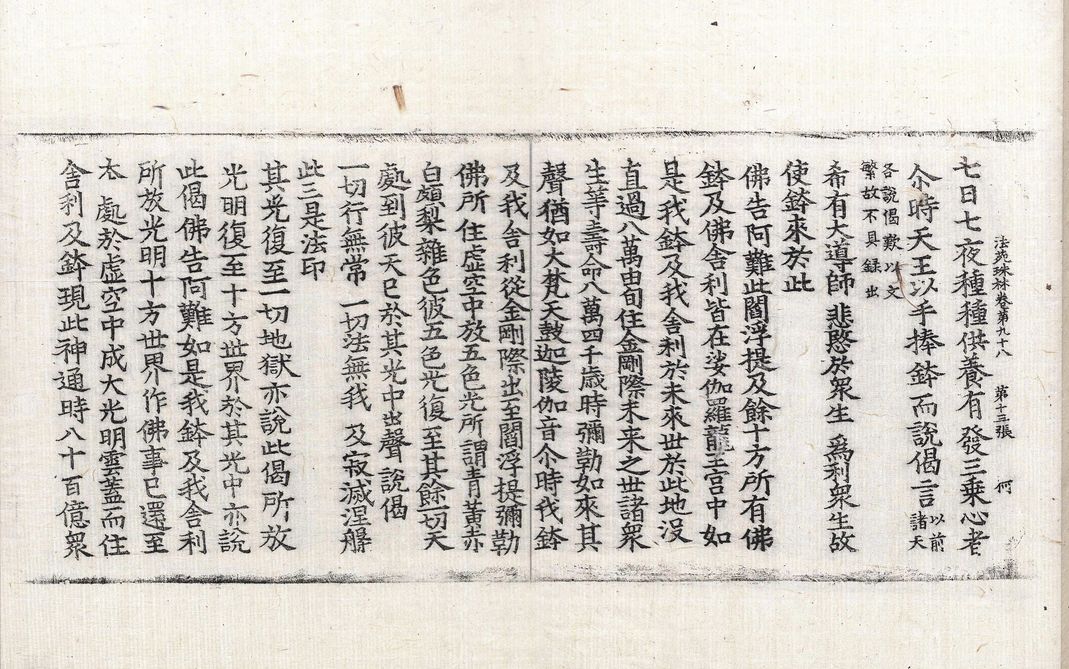 法苑珠林卷第九十八 第十三張 何
七日七夜種種供養有發三乗心者
尒時天王以手捧鉢而說偈言
以前
諸天
各說偈歎以文
繁故不具録出
希有大導師 悲愍於衆生 爲利衆生故
使鉢來於此
佛告阿難此閻浮提及餘十方所有佛
鉢及佛舍利皆在娑伽羅龍王宫中如
是我鉢及我舍利於未來世於此地沒
直過八萬由旬住金剛際未来之世諸衆
生等壽命八萬四千歲時彌勒如來其
聲猶如大梵天鼓迦陵伽音尒時我鉢
及我舍利從金剛際出至閻浮提彌勒
佛所住虛空中放五色光所謂青黃赤
白頗梨雜色彼五色光復至其餘一切天
處到彼天已於其光中出聲說偈
一切行無常 一切法無我 及寂滅涅槃
此三是法印
其光復至一切地獄亦說此偈所放
光明復至十方世界於其光中亦說
此偈佛告阿難如是我鉢及我舍利
所放光明十方世界作佛事已還至
本處於虛空中成大光明雲蓋而住
舍利及鉢現此神通時八十百億衆